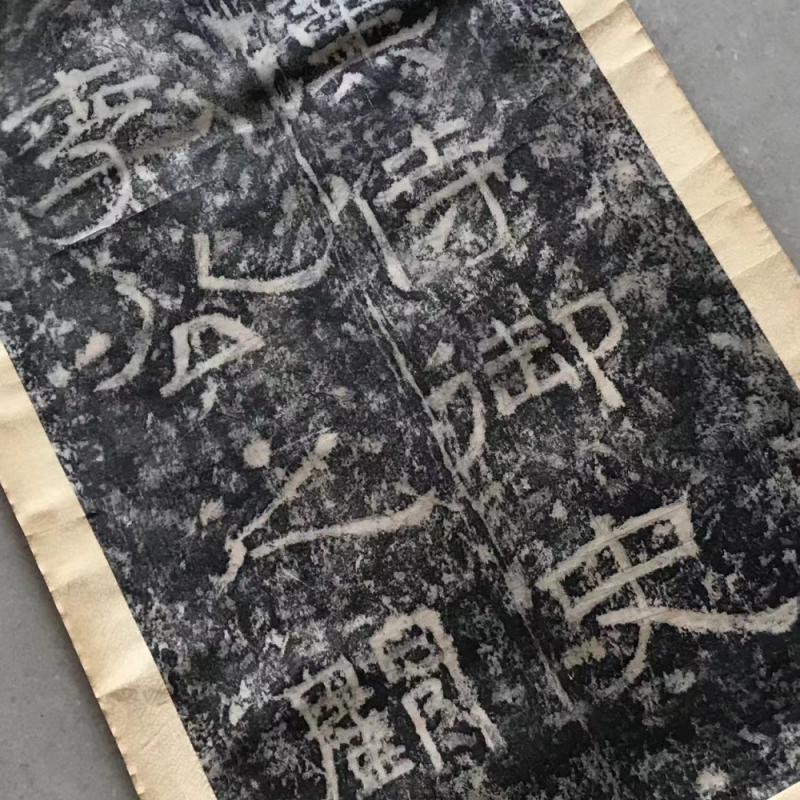 侍御史
李公之闕